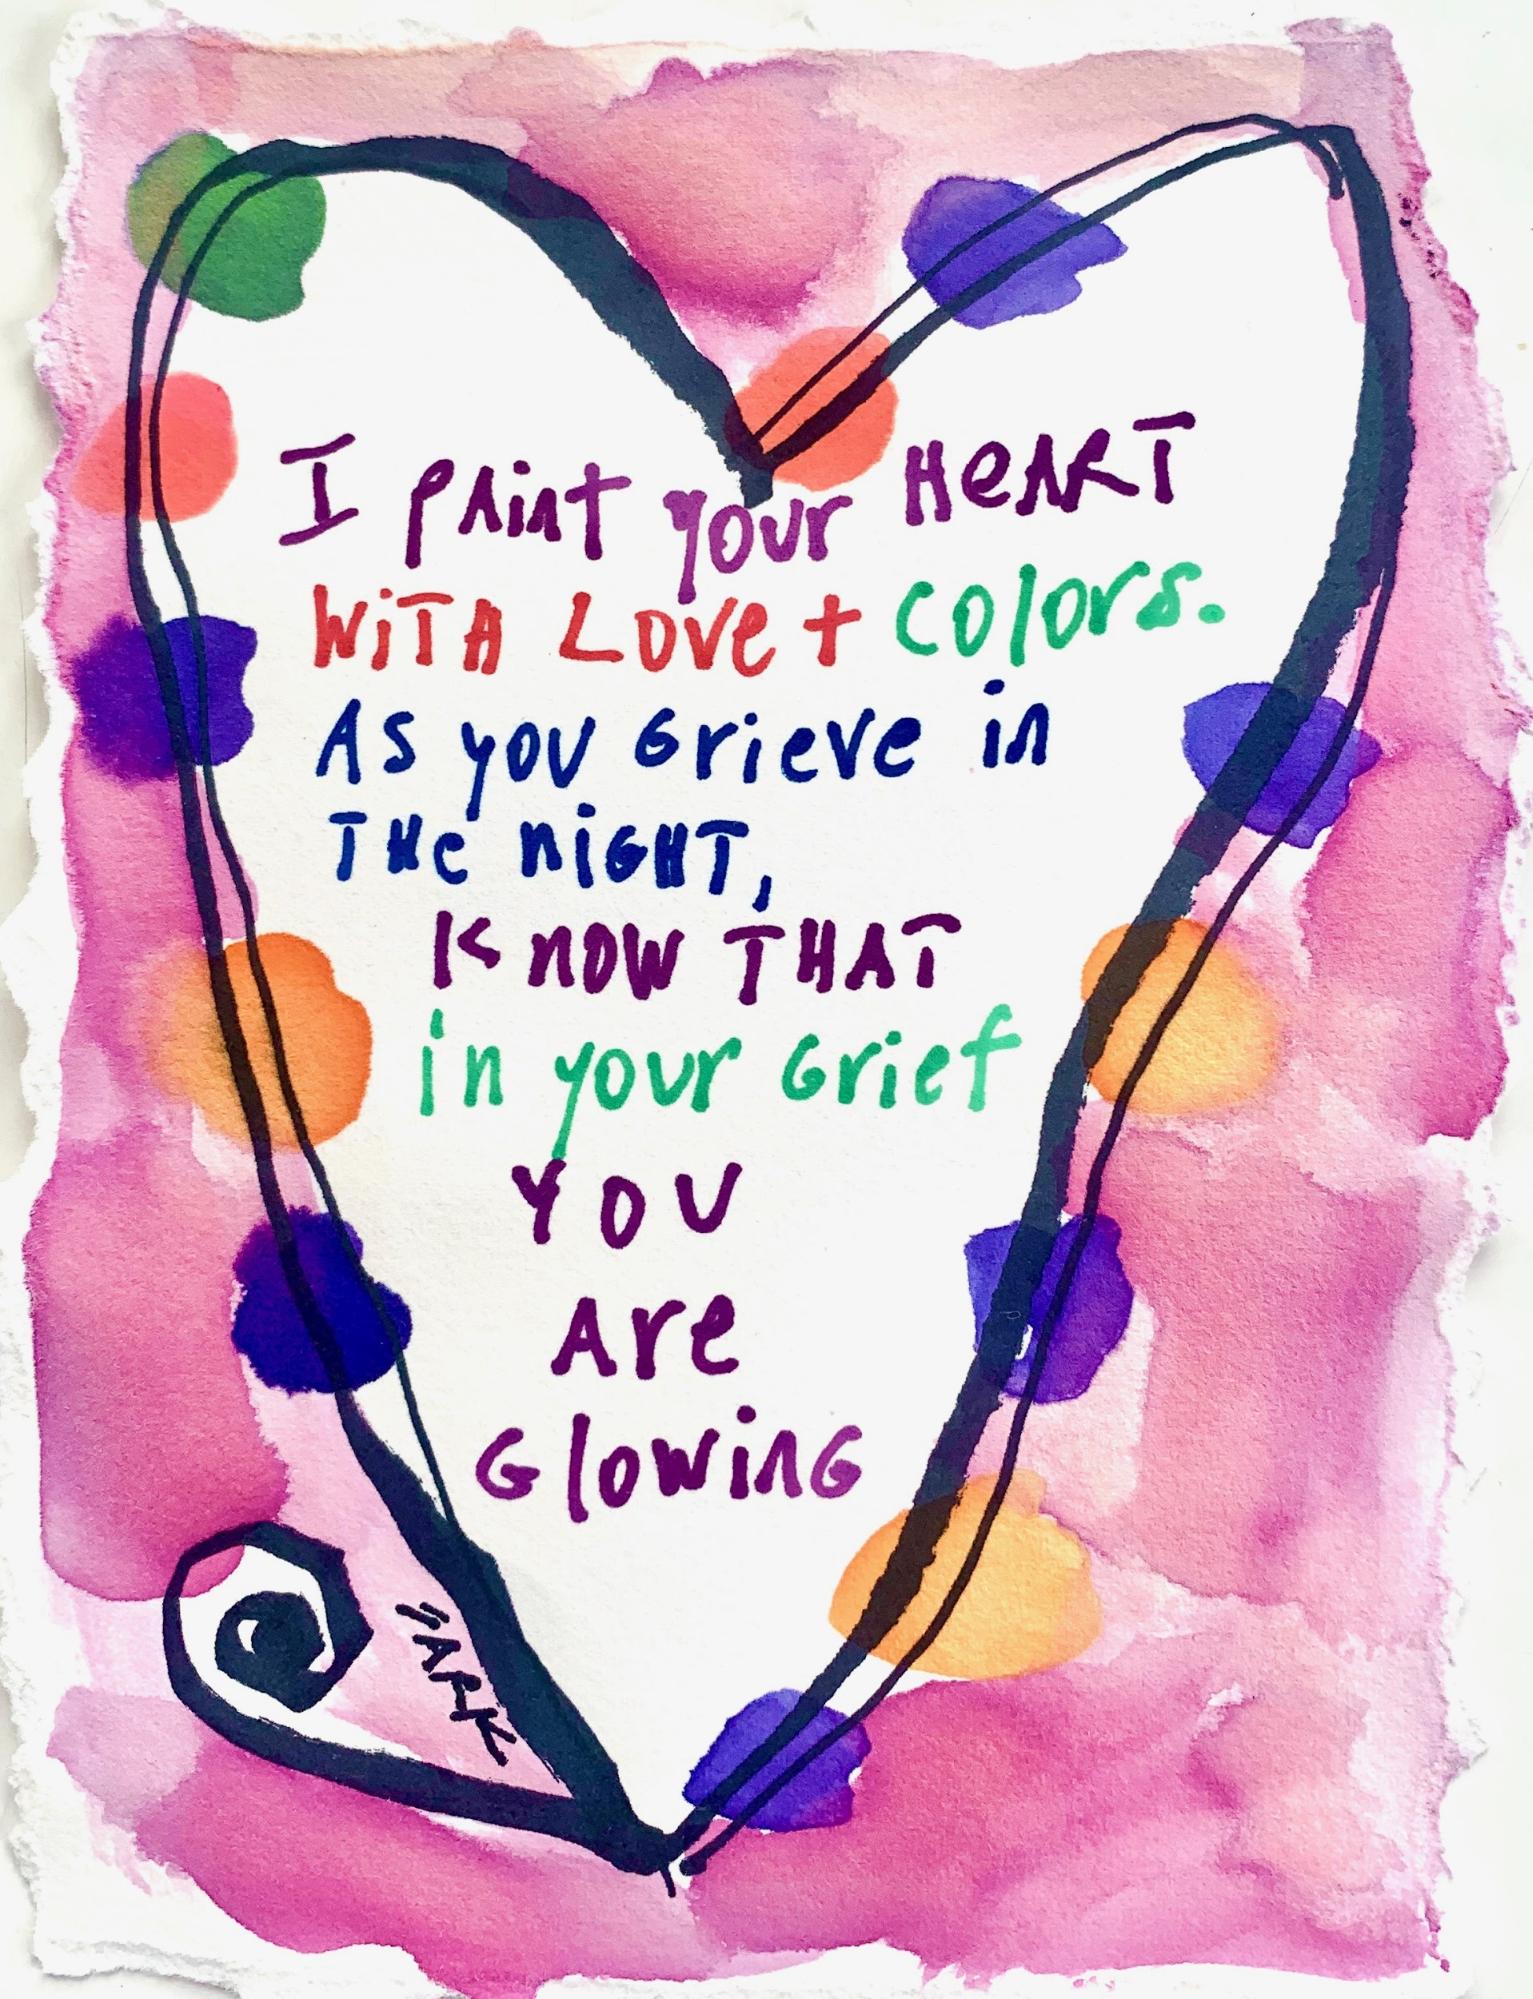 I pAint your HeART
WiTH Love + colors.
As you Grieve in
THe niGHT,
Know THAT
in your Grief
YOU
Are
GlowinG
SARK